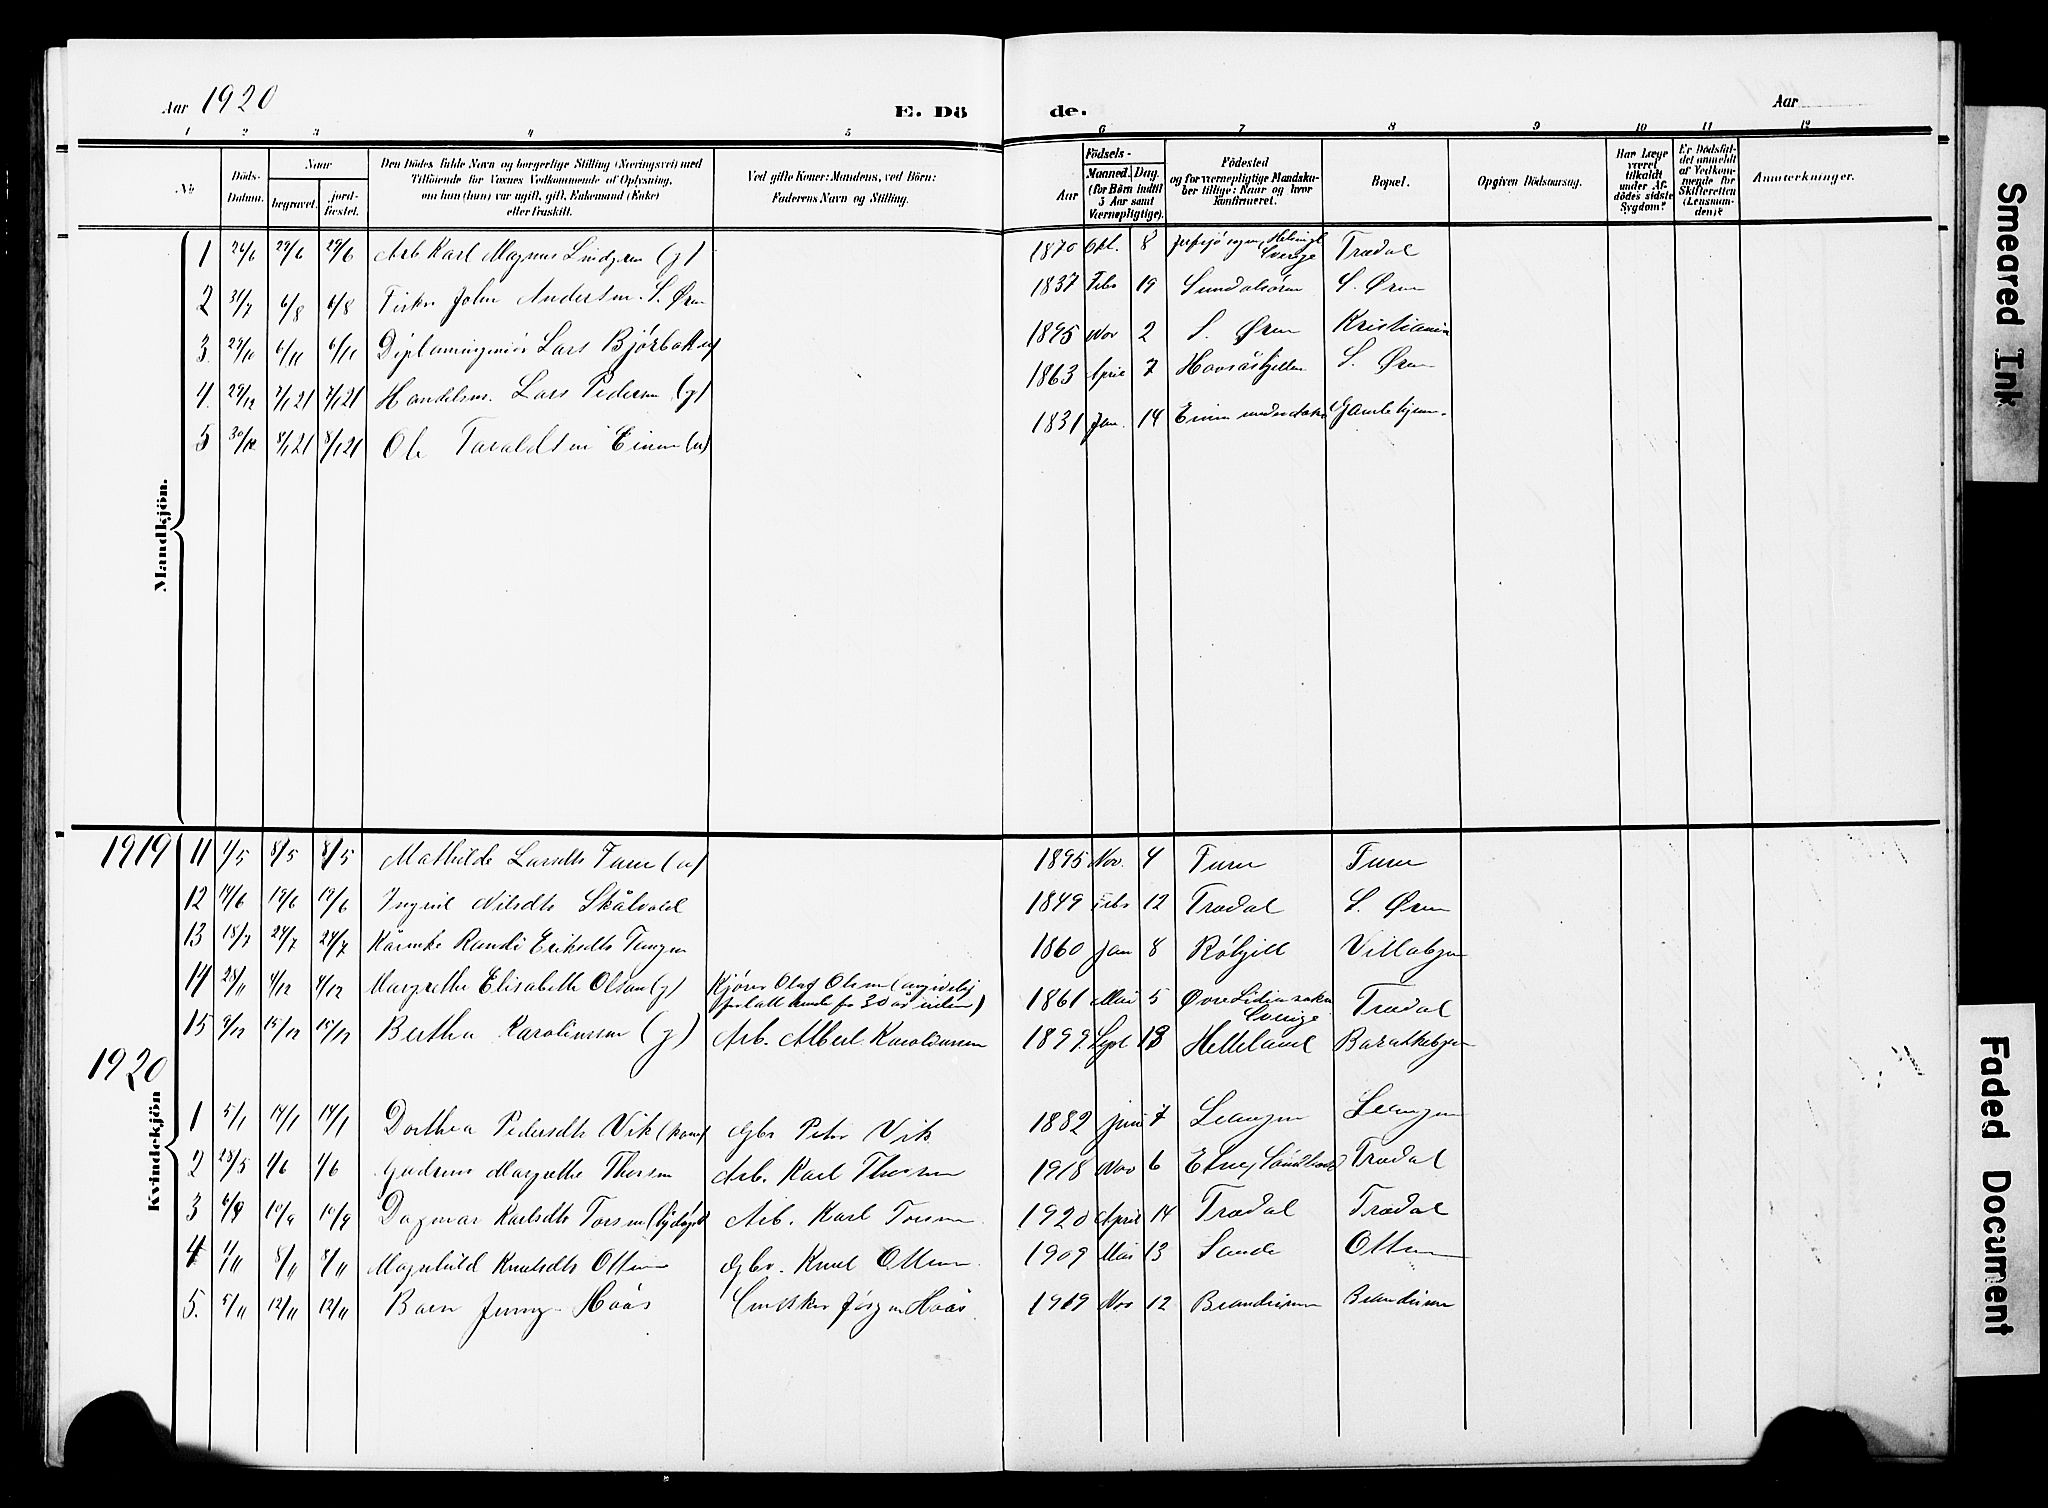 Aar 1920
E. Dö de.
Aar
1 2 3 4 5 6 7 8 9 10 11 12
No
Döds-Datum.
Naar
begravet.
jord-fæstet.
Den Dödes fulde Navn og borgerlige Stilling (Næringsvei) med
Tilföiende for Voxnes Vedkommende af Oplysning,
om han (hun) var ugift, gift, Enkemand (Enke)
eller fraskilt.
Ved gifte Koner: Mandens, ved Börn:
Faderens Navn og Stilling.
Födsels-
Aar
Maaned. Dag.
(for Börn indtil
5 Aar samt
Værnepligtige).
Födested
og for værnepligtige Mandsku-
ber tillige: Naar og hvor
konfirmeret.
Bopæl.
Opgiven Dödsaarsag.
Har Læge
været
tilkaldt
under Af-
dödes sidste
Sygdom?
Er Dödsfal-
det anmeldt
af Vedkom-
mende for
Skifteretten
(Lensman-
den)?
Anmærkninger.
Mandkjön.
1 26/6 29/6 29/6 Arb Karl Magnus Lindgren (g) 1870 Okt. 8 Sverige Trædal
2 31/7 6/8 6/8 Fisker John Andersen S. Øren 1837 Febr 19 Sundalsøren S. Øren
3 29/10 6/11 6/11 Diplomingeniør Lars Bjørbæk 1895 Nov 2 S. Øren Kristiania
4. 29/12 7/1 21 7/1 21 Handelsm. Lars Pedersen (g) 1863 April 7 S. Øren
5 30/12 8/1 21 8/1 21 Ole Taraldsen (u) 1831 Jan. 14
1919
11 1/5 8/5 8/5 Mathilde Larsdtr Furu (u) 1895 Nov. 4 Furu Furu
12 14/6 19/6 19/6 Ingrid Nilsdtr Skålvold 1849 Febr 12 Trædal S. Øren
13 18/7 24/7 24/7 Randi Eriksdtr Tangen 1860 Jan 8
14 28/11 4/12 4/12 Margrethe Elisabeth Olsen (g) Kjører Olaf Olsen (angivelig
forlatt hende for 30 år siden) 1861 Mai 5 Øvre Sverige Trædal
15 9/12 15/12 15/12 Bertha Karolinssen (g) Arb. Albert Karolinssen 1899. Sept 13 Helleland Barakkebyen
1920
Kvindekjön
1 5/1 14/1 14/1 Dorthea Pedersdtr Vik Gbr Peter Vik 1882 juni 7
2 28/5 4/6 4/6 Gudrun Margrethe Thorsen Arb. Karl Thorsen 1918 Nov 6 Etne, Trædal
3 6/9 10/9 10/9 Dagmar Karlsdtr Torsen Arb. Karl Torsen 1920 April 14 Trædal Trædal
4 1/11 8/11 8/11 Magnhild Knutsdtr Ottem Gbr. Knut Ottem 1909 Mai 13 Sande Ottem
5. 5/11 12/11 12/11 Barn Jenny Hoås Jørgen Hoås 1919 Nov 12
Smeared Ink
Faded Document